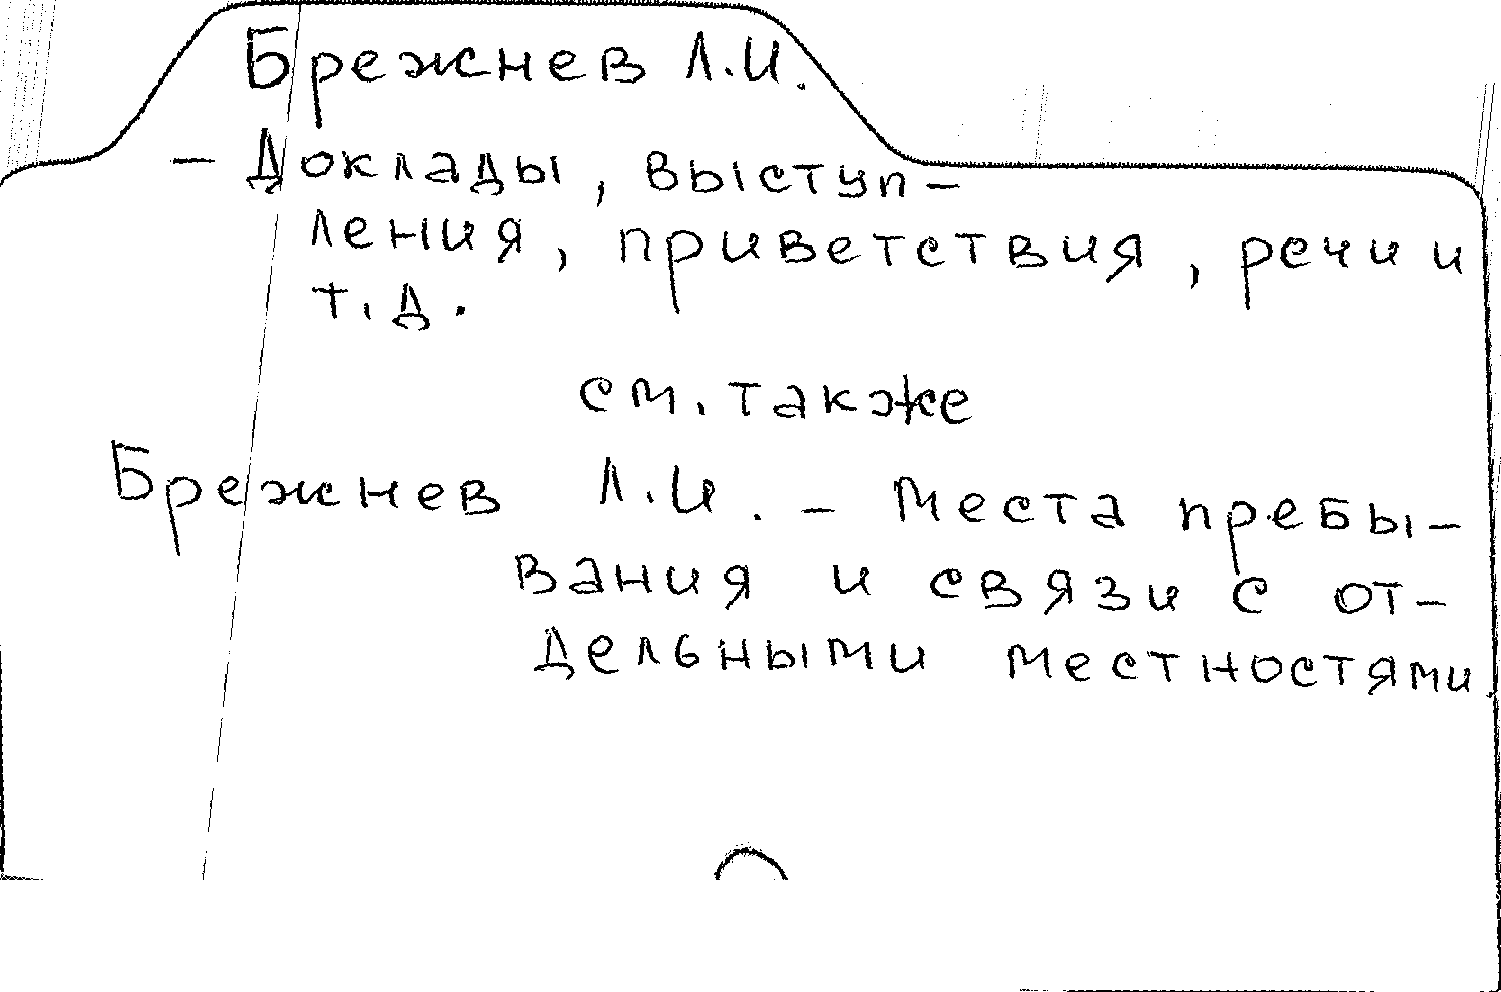 Брежнев Л.И.
– Доклады, выступ–
ления, приветствия, речи и
т.д.
см. также
Брежнев Л.И. – Места пребы–
вания и связи с от–
дельными местностями